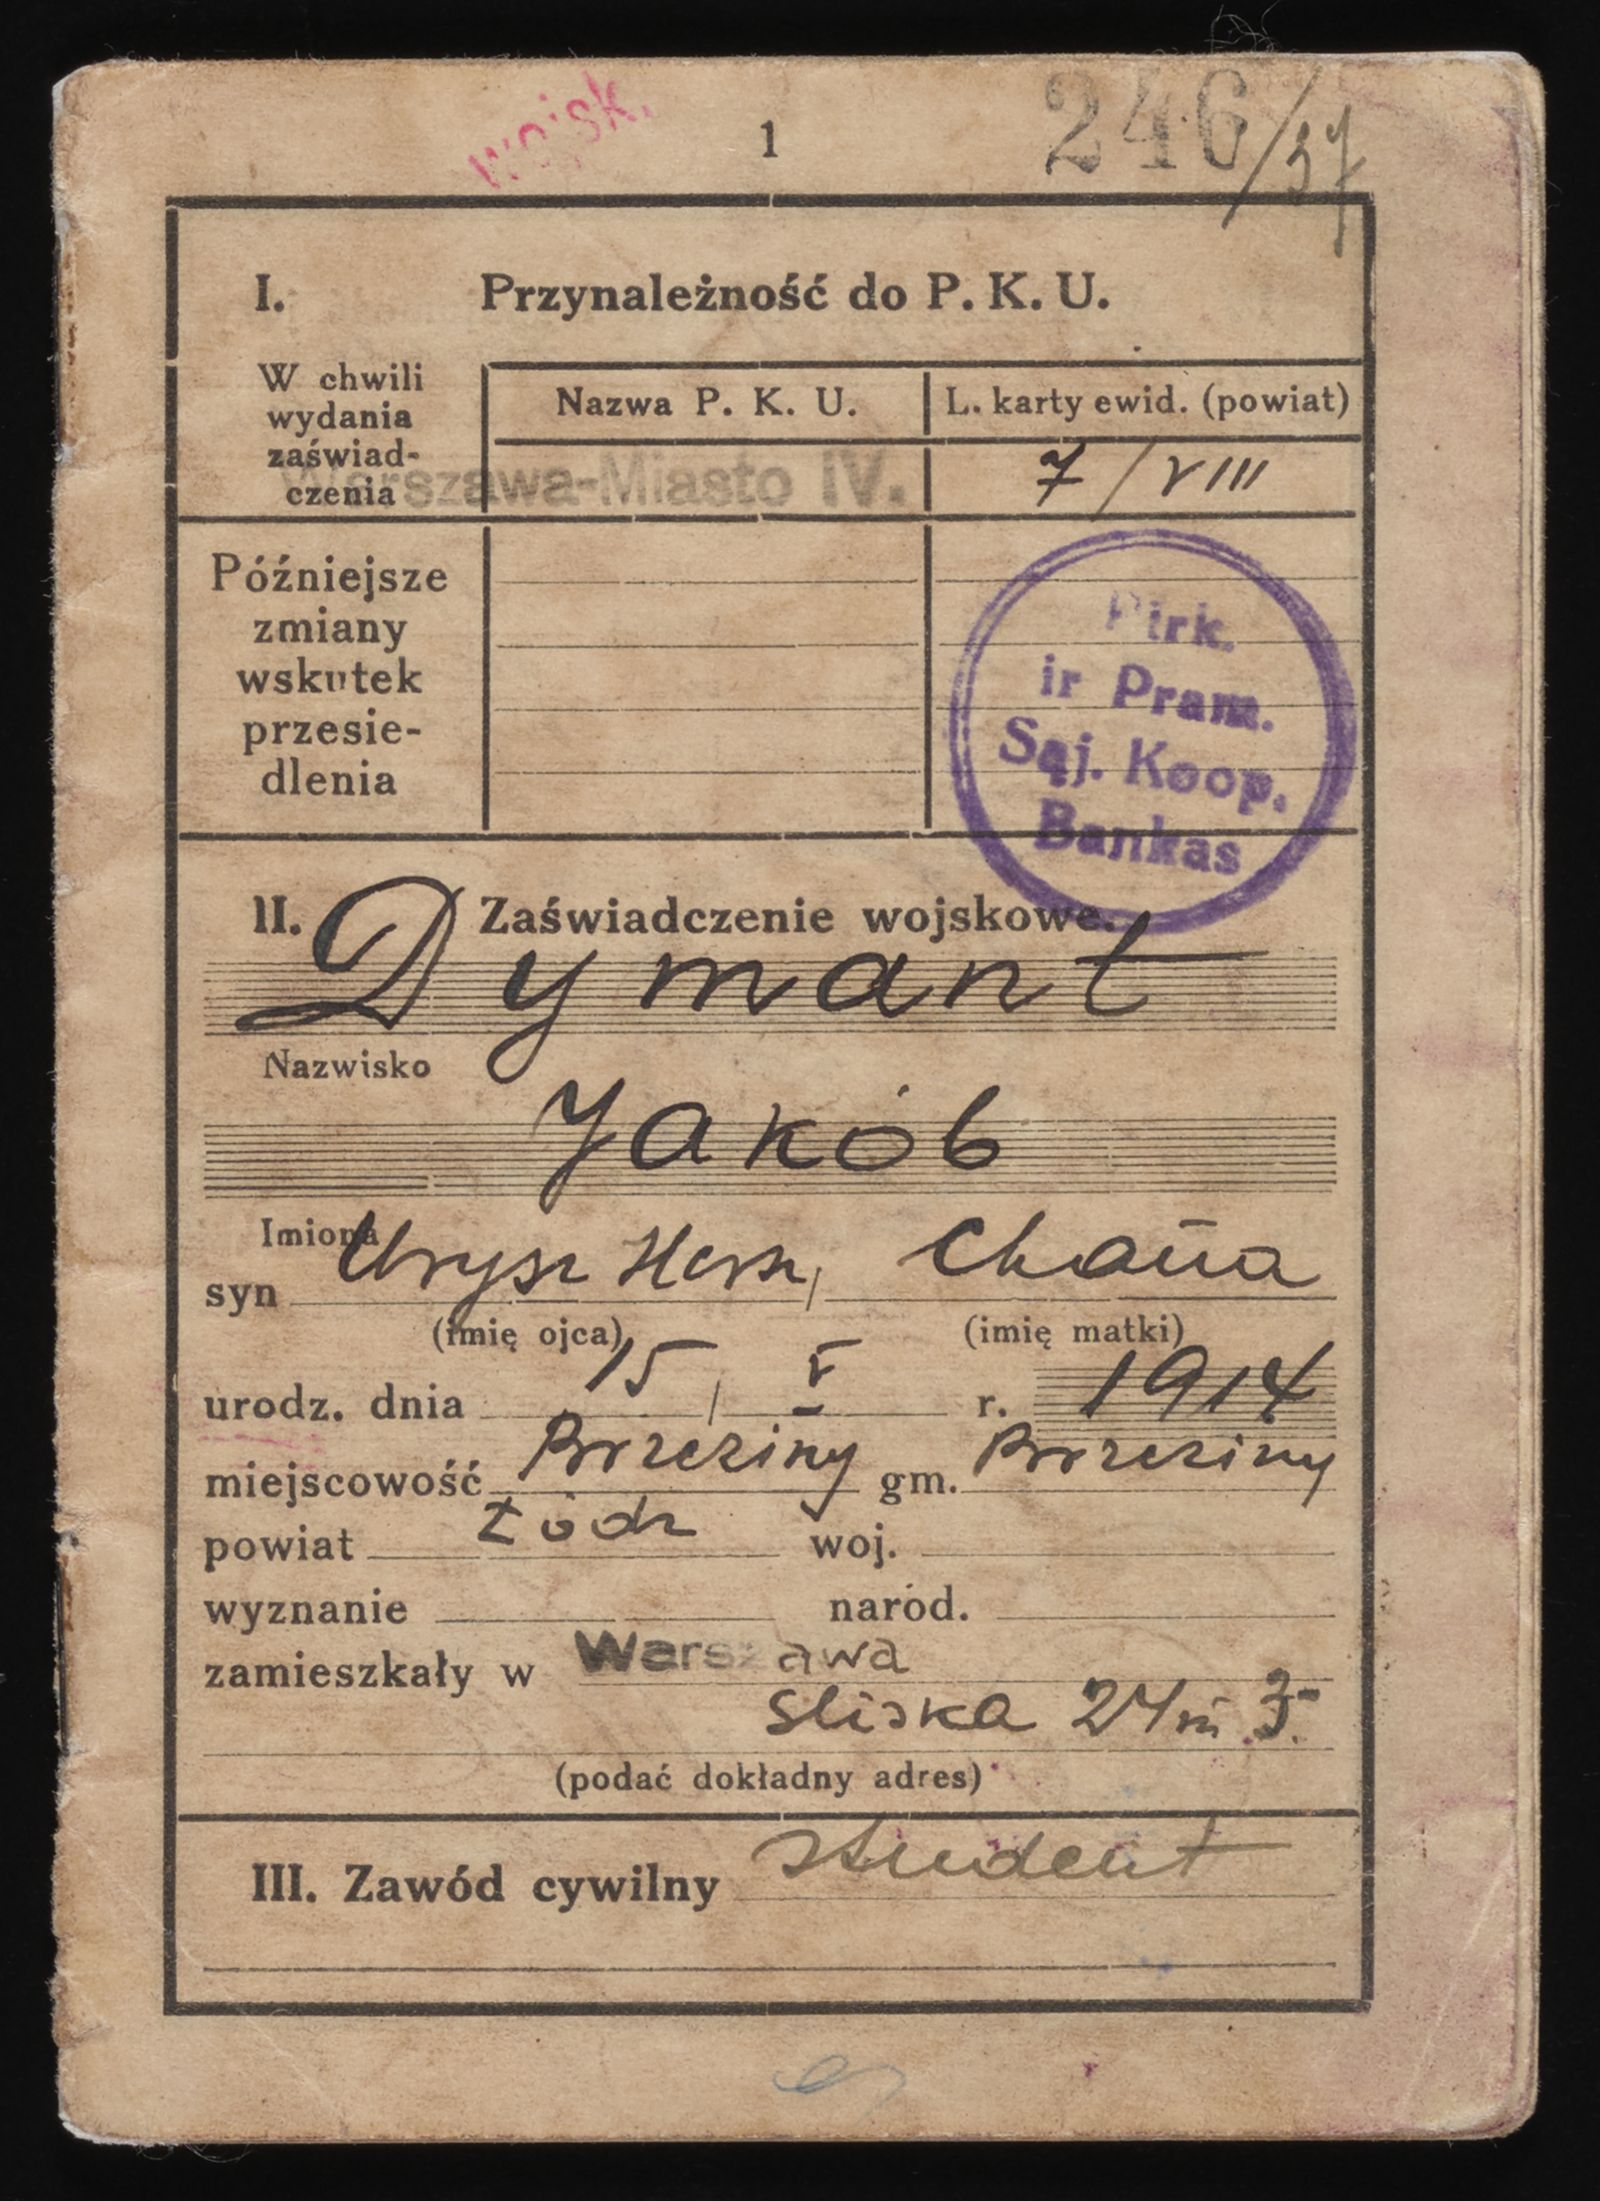 wojsk.
1
246/37
I. Przynależność do P. K. U.
W chwili wydania zaświadczenia
Nazwa P. K. U.
L. karty ewid. (powiat)
Warszawa-Miasto IV.
7/VIII
Późniejsze
zmiany
wskutek
przesie-
dlenia
Pirk.
ir Pram.
Sąj. Koop.
Bankas
II. Zaświadczenie wojskowe.
Dymant
Nazwisko
Jakób
Imiona
syn Urysz Hersz, Chana
(imię ojca) (imię matki)
urodz. dnia 15, V r. 1914
miejscowość Brzeziny gm. Brzeziny
powiat Łódz woj.
wyznanie naród.
zamieszkały w Warszawa
Sliska 24 m 3
(podać dokładny adres)
III. Zawód cywilny student